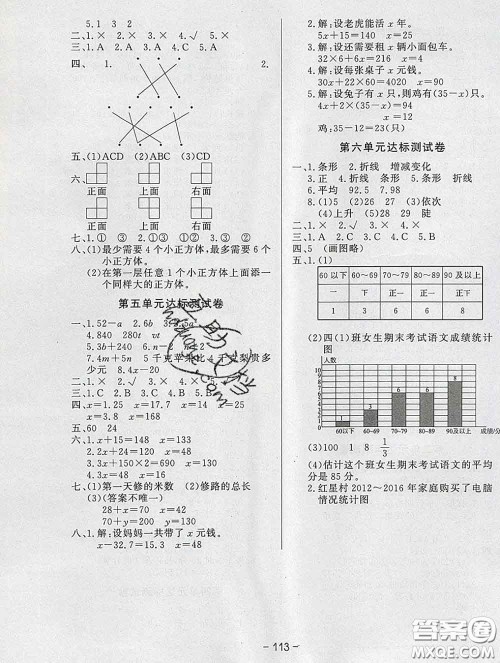 5. 1 3 2
二、1.× 2.× 3.√ 4.× 5.×
三、1.A 2.A 3.C 4.A 5.C
四、 1. 2.
五、(1)ACD (2)ABC (3)CD
六、
正面 上面 右面
正面 上面 右面
七、1.① ③ 2.① ③ 3.② ②
八、(1)最少需要 4 个小正方体,最多需要 6 个
小正方体。
(2)在第一层任意 1 个小正方体上面添一
个同样大的正方体。
第五单元达标测试卷
一、1.52-a 2.6b
4.840 280t vt
5.3b+240 6.5
7.4m+5n
少元 8.4x-20
二、1.× 2.× 3.√ 4.× 5.
三、1.C 2.B 3.C
四、x=1.25 x=17.7 x=14 x=25
五、60 24
六、1.x+15=148 x=133
2.4x=100 x=25
3.x-15=28 x=43
4.4x+x=135 x=27
七、(1)第一天修的米数 (2)修路的总长
(3)(答案不唯一)
28+x=70 x=42
70+y=200 y=130
八、1.解:设妈妈一共带了 x 元钱。
x-32.7=15.3 x=48
2.解:设老虎能活 x 年。
5x+15=140 x=25
3.解:设还需要租 x 辆小面包车。
32×6+6x=216 x=4
4.解:设每张桌子 x 元钱。
30x+22×25=1810 x=42
5.解:设兔子有 x 只,则鸡有(35-x)只。
4x+2×(35-x)=94
x=12
鸡:35-12=23(只)
第六单元达标测试卷
一、1.条形 2.折线 增减变化
3.正 4.折线 条形 折线 5.条形
6.平均 92.5 7.98
8.(1)15 (2)36 (3)26 (3)依次
(4)上升 9.(2)28 29 陡
二、1.× 2.× 3.√ 4.√ 5.×
三、1.A 2.C 3.A 4.C 5.B
四、5 (画图略)
五、1.(1)
60 以下 60~69 70~79 80~89 90 及以上
一 下 正一 正一 正下
(2)四(1)班女生期末考试语文成绩统计
图
人数
8
6 6
3
1
60以下 60~69 70~79 80~89 90及以上 成绩/分
(3)100 1 8 1/3
(4)估计这个班女生期末考试语文的平
均分是 85 分。
2.红星村 2012~2016 年家庭购买了电脑
情况统计图
- 113 -
答案圈
MXQE.COM